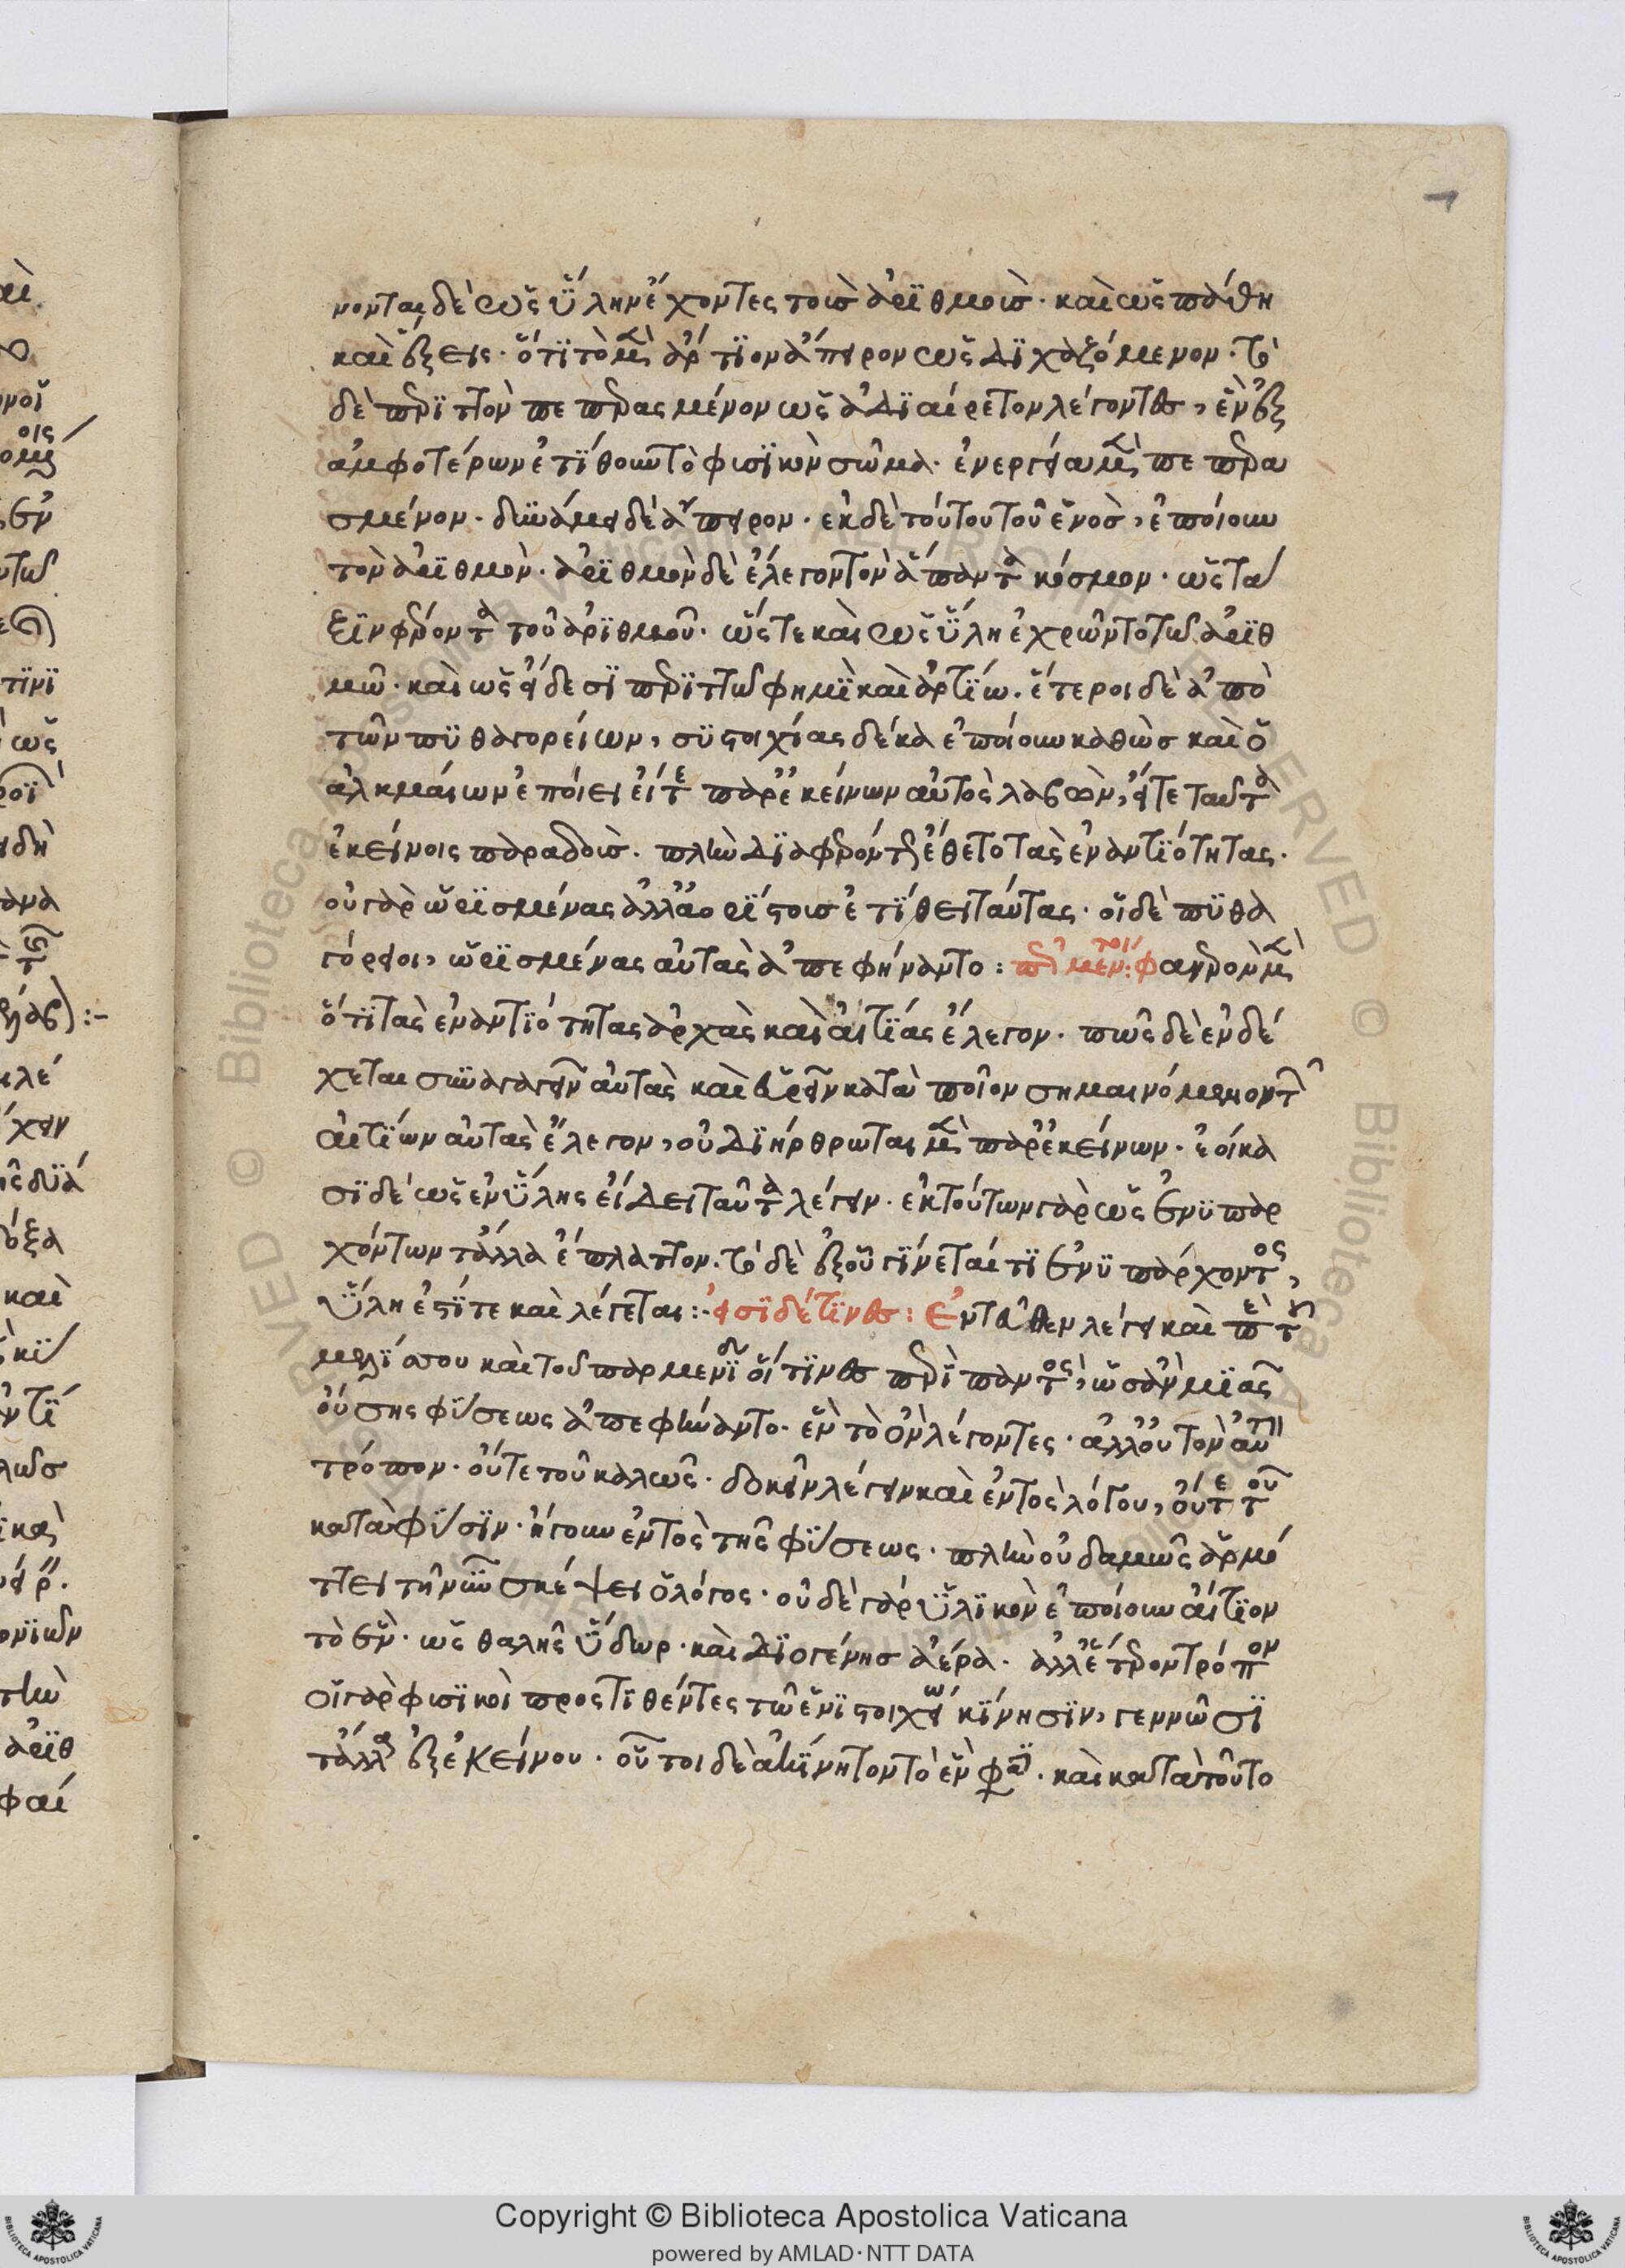 νονται δὲ ὡς ὕλην ἔχοντες τοῖς ἀριθμοῖς · καὶ ὡς πάθη
καὶ ἕξεις · ὅτι τὸ μὲν ἄρτιον ἄπειρον ὡς διχαζόμενον · τὸ
δὲ περιττὸν πεπερασμένον ὡς ἀδιαίρετον λέγοντες, ἓν ἐξ
ἀμφοτέρων ἐτίθουν τὸ φυσικὸν σῶμα · ἐνεργεία μὲν πεπερα
σμένον · δυνάμει δὲ ἄπειρον · ἐκ δὲ τούτου τοῦ ἑνὸς, ἐποίουν
τὸν ἀριθμὸν · ἀριθμὸν δὲ ἔλεγον τὸν ἅπαντα κόσμον · ὡς τά
ξιν φέροντα τοῦ ἀριθμοῦ · ὥστε καὶ ὡς ὕλη ἐχρῶντο τῷ ἀριθ
μῶ · καὶ ὡς εἴδεσι περιττῷ φημὶ καὶ ἀρτίω · ἕτεροι δὲ ἀπὸ
τῶν πυθαγορείων, συστοιχίας δέκα ἐποίουν καθὼς καὶ ὁ
ἀλκμαίων ἐποίει εἴτε παρ' ἐκείνων αὐτὸς λαβὼν, εἴτε ταῦτα
ἐκείνοις παραδοὺς · πλὴν διαφερόντως ἔθετο τὰς ἐναντιότητας ·
οὐ γὰρ ὡρισμένας ἀλλ' ἀορίστους ἐτίθει ταύτας · οἱ δὲ πυθα
γόρειοι, ὡρισμένας αὐτὰς ἀπεφήναντο : περὶ μὲν τοί: φανερὸν μὲν
ὅτι τὰς ἐναντιότητας ἀρχὰς καὶ αἰτίας ἔλεγον · πῶς δὲ ἐνδέ
χεται συναγαγεῖν αὐτὰς καὶ εὑρεῖν κατὰ ποῖον σημαινόμενον τῶν
αἰτίων αὐτὰς ἔλεγον, οὐ διήρθρωται μὲν παρ' ἐκείνων · ἐοίκα
σι δὲ ὡς ἐν ὕλης εἴδει ταῦτα λέγειν · ἐκ τούτων γὰρ ὡς ἐνυπαρ
χόντων τἄλλα ἔπλαττον · τὸ δὲ ἐξ οὗ γίνεταί τι ἐνυπάρχοντος,
ὕλη ἐστί τε καὶ λέγεται :· εἰσὶ δέ τινες : Ἐντεῦθεν λέγει καὶ περὶ τοῦ
μελίσσου καὶ τοῦ παρμενίδου οἵτινες περὶ παντὸς, ὡς ἂν μιᾶς
οὔσης φύσεως ἀπεφήναντο · ἓν τὸ ὂν λέγοντες · ἀλλ' οὐ τὸν αὐτὸν
τρόπον · οὔτε τοῦ καλῶς · δοκεῖν λέγειν καὶ ἐντὸς λόγου, οὔτε τοῦ
κατὰ φύσιν · ἤγουν ἐντὸς τῆς φύσεως · πλὴν οὐδαμῶς ἁρμό
ττει τῇ νῦν σκέψει ὁ λόγος · οὐδὲ γὰρ ὑλικὸν ἐποίουν αἴτιον
τὸ ἓν · ὡς θαλῆς ὕδωρ · καὶ διογένης ἀέρα · ἀλλ' ἕτερον τρόπον
οἱ γὰρ φυσικοὶ προστιθέντες τῶ ἑνὶ στοιχείω κίνησιν, γεννῶσι
τἄλλα ἐξ ἐκείνου · οὗτοι δὲ ἀκίνητον τὸ ἓν φασι · καὶ κατὰ τοῦτο